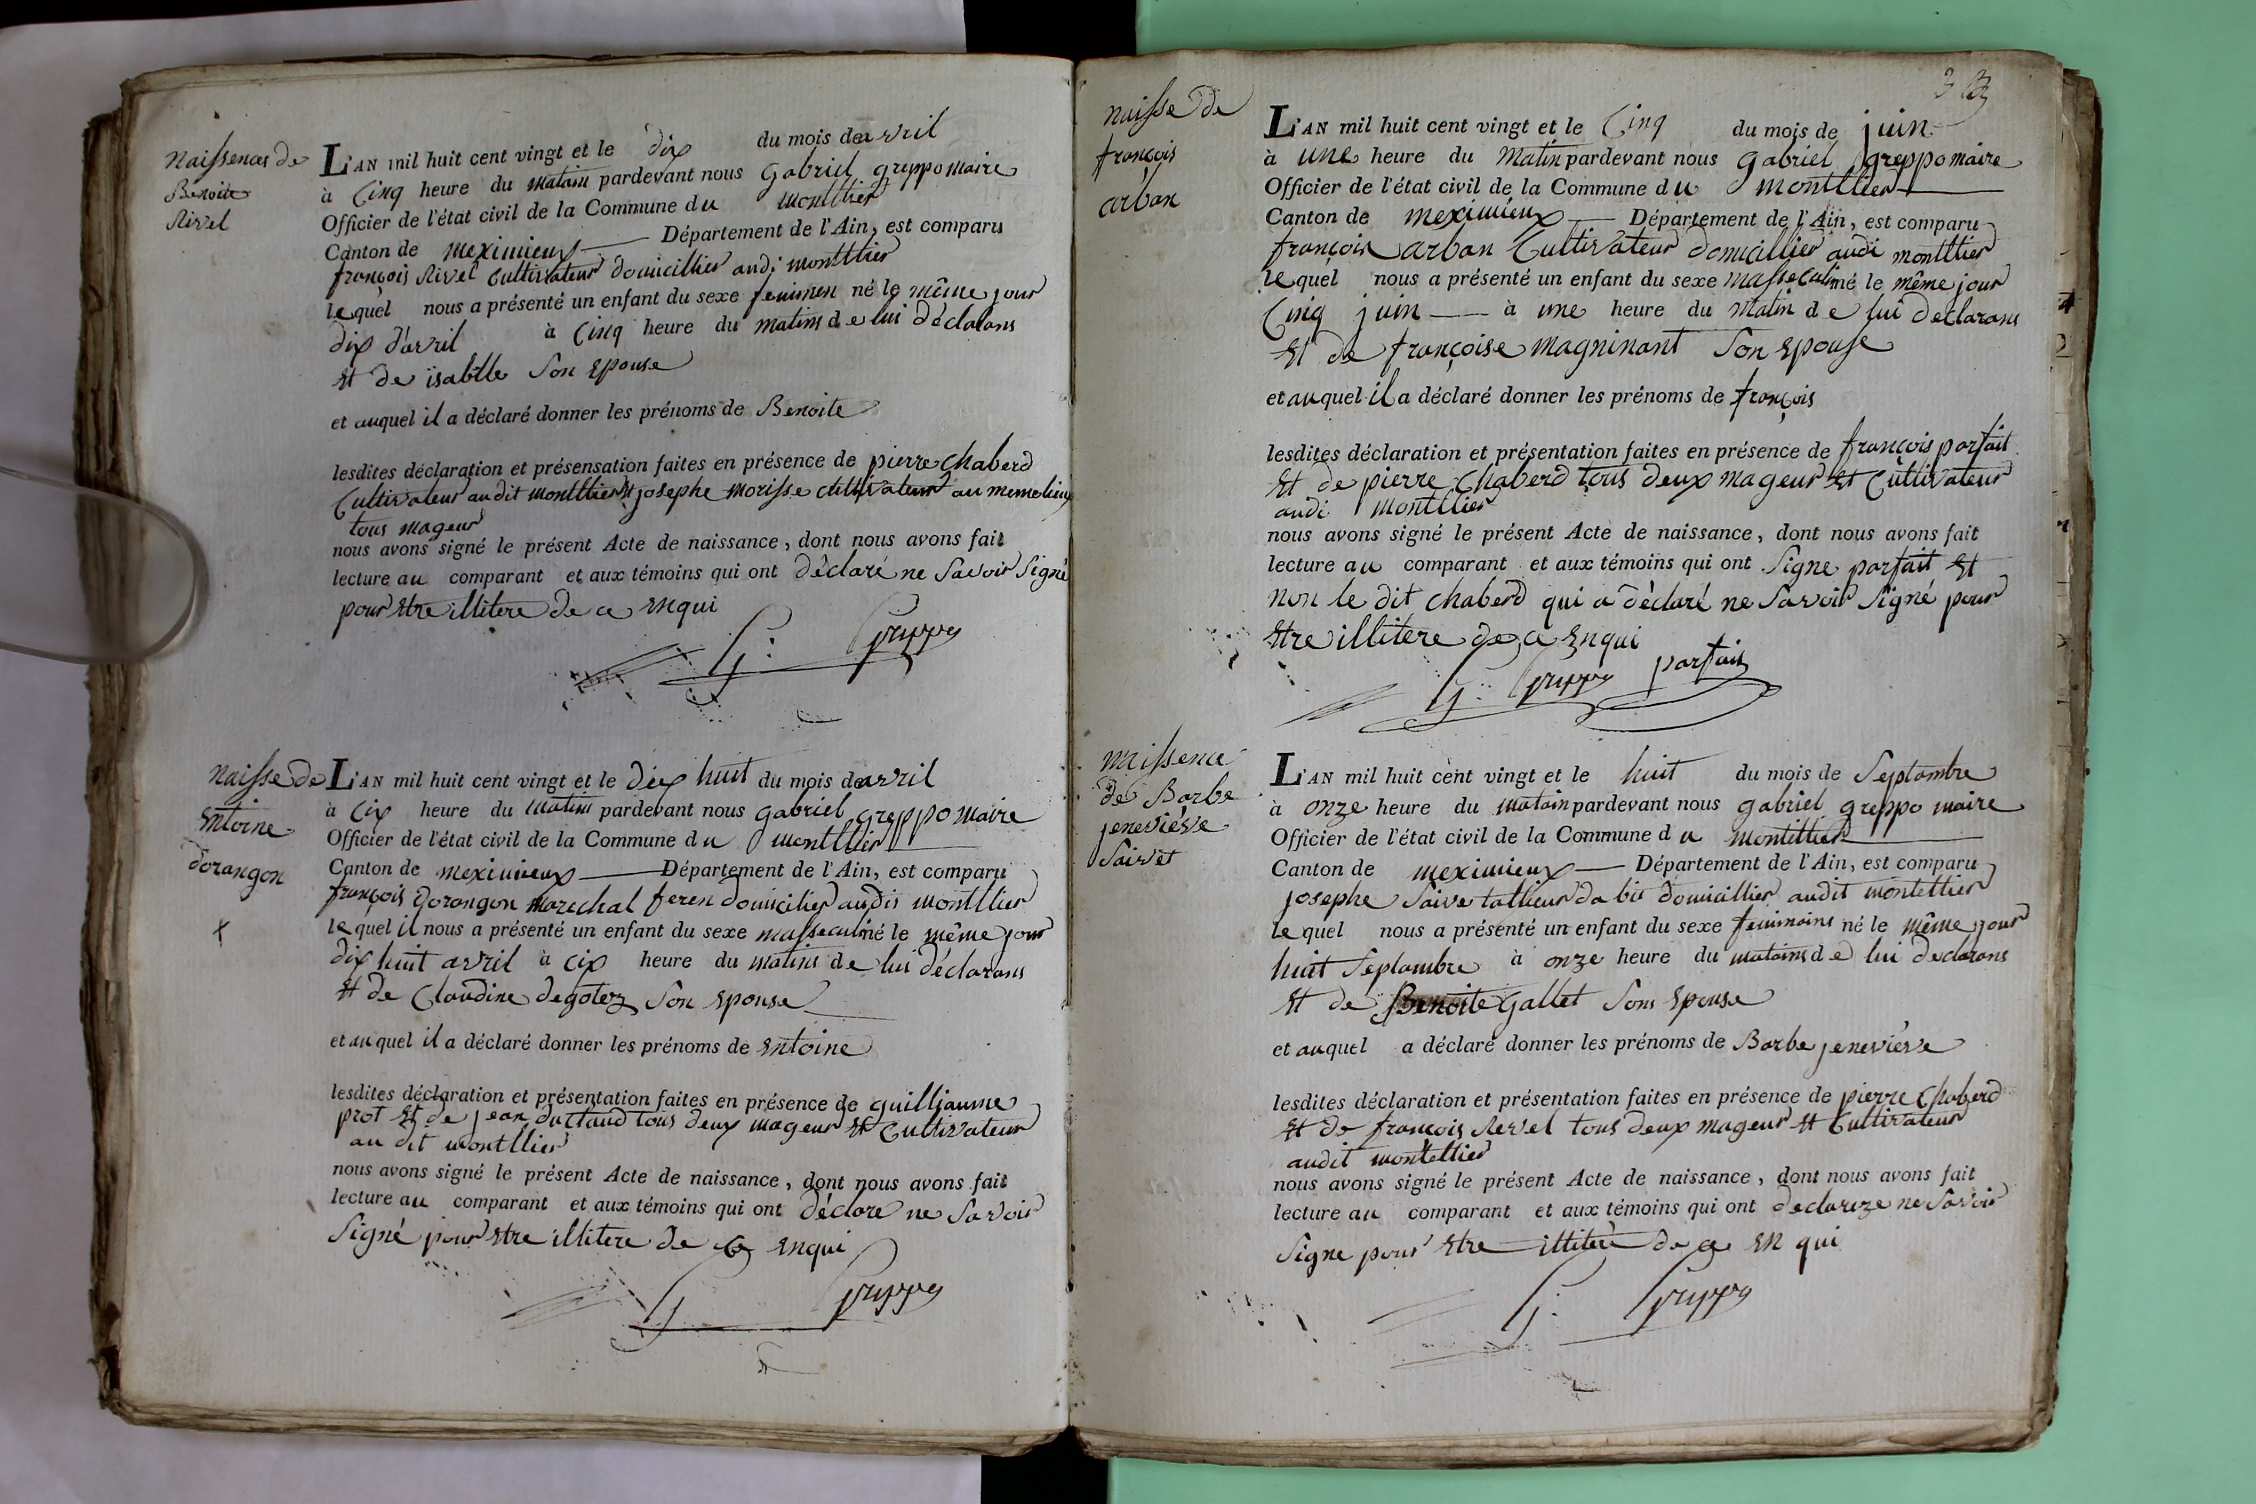 Naissences de
Benoite
Rivel
L'AN mil huit cent vingt et le dix du mois de avril
à Cinq heure du matain pardevant nous Gabriel greppo maire
Officier de l'état civil de la Commune du montllier
Canton de meximieux Département de l'Ain, est comparu
françois Rivel Cultivateur domicillier audi montllier
lequel nous a présenté un enfant du sexe feminen né le même jour
dix d'avril à Cinq heure du matins de lui déclarans
Et de isabelle Son Epouse
et auquel il a déclaré donner les prénoms de Benoite
lesdites déclaration et présensation faites en présence de pierre Chaberd
Cultivateur au dit montllier Et josephe morisse cultivateur au meme lieux
tous mageur
nous avons signé le présent Acte de naissance, dont nous avons fait
lecture au comparant et aux témoins qui ont déclaré ne Savoir Signé
pour Etre illitere de ce Enqui
G: Greppo
Naisse de
Entoine
dorangon
L'AN mil huit cent vingt et le dix huit du mois de avril
à Cix heure du matins pardevant nous gabriel greppo maire
Officier de l'état civil de la Commune du montllier
Canton de meximieux Département de l'Ain, est comparu
françois dorangon marechal feren domicilier audis montllier
lequel il nous a présenté un enfant du sexe masseculin né le même jour
dix huit avril à cix heure du matins de lui déclarans
Et de Claudine degotez Son Epouse
et auquel il a déclaré donner les prénoms de Entoine
lesdites déclaration et présentation faites en présence de guilljaume
prot Et de jean ductaud tous deux mageur Et Cultivateur
au dit montllier
nous avons signé le présent Acte de naissance, dont nous avons fait
lecture au comparant et aux témoins qui ont déclaré ne Savoir
Signé pour Etre illitere de ce Enqui
G Greppo
3
naisse de
françois
arban
L'AN mil huit cent vingt et le Cinq du mois de juin
à une heure du matin pardevant nous gabriel greppo maire
Officier de l'état civil de la Commune du montllier
Canton de meximieux Département de l'Ain, est comparu
françois arban Cultivateur domicillier audi montllier
lequel nous a présenté un enfant du sexe masseculin né le même jour
Cinq juin à une heure du matin de lui declarans
Et de françoise magninant Son Epouse
et auquel il a déclaré donner les prénoms de françois
lesdites déclaration et présentation faites en présence de françois parfait
Et de pierre Chaberd tous deux mageur Et Cultivateur
audi montllier
nous avons signé le présent Acte de naissance, dont nous avons fait
lecture au comparant et aux témoins qui ont Signe parfait Et
non le dit chaberd qui a déclaré ne Savoir Signé pour
Etre illitere de ce Enqui
G: Greppo parfait
naissence
de Barbe
jeneviéve
Saivet
L'AN mil huit cent vingt et le huit du mois de Septambre
à onze heure du matain pardevant nous gabriel greppo maire
Officier de l'état civil de la Commune du montillier
Canton de meximieux Département de l'Ain, est comparu
josephe Saive tallieur da bis domicillier audit montellier
lequel nous a présenté un enfant du sexe feminains né le même jour
huit Septambre à onze heure du matains de lui declarans
Et de Benoite Gallet Sons Epouse
et auquel a déclaré donner les prénoms de Barbe jeneviéve
lesdites déclaration et présentation faites en présence de pierre Chaberd
Et de francois Revel tous deux mageur Et Cultivateur
audit montellier
nous avons signé le présent Acte de naissance, dont nous avons fait
lecture au comparant et aux témoins qui ont declareze ne Savoir
Signe pour Etre illitere de ce En qui
G: Greppo